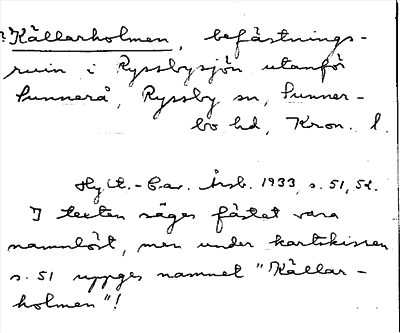 ?Källarholmen, befästnings-
ruin i Ryssbysjön utanför
Sunnerå, Ryssby sn, Sunner-
bo hd, Kron. l.
Hylt.-Cav. Årsb. 1933, s. 51, 52.
I texten säges fästet vara
namnlöst, men under kartskissen
s. 51 uppges namnet "Källar-
holmen"!